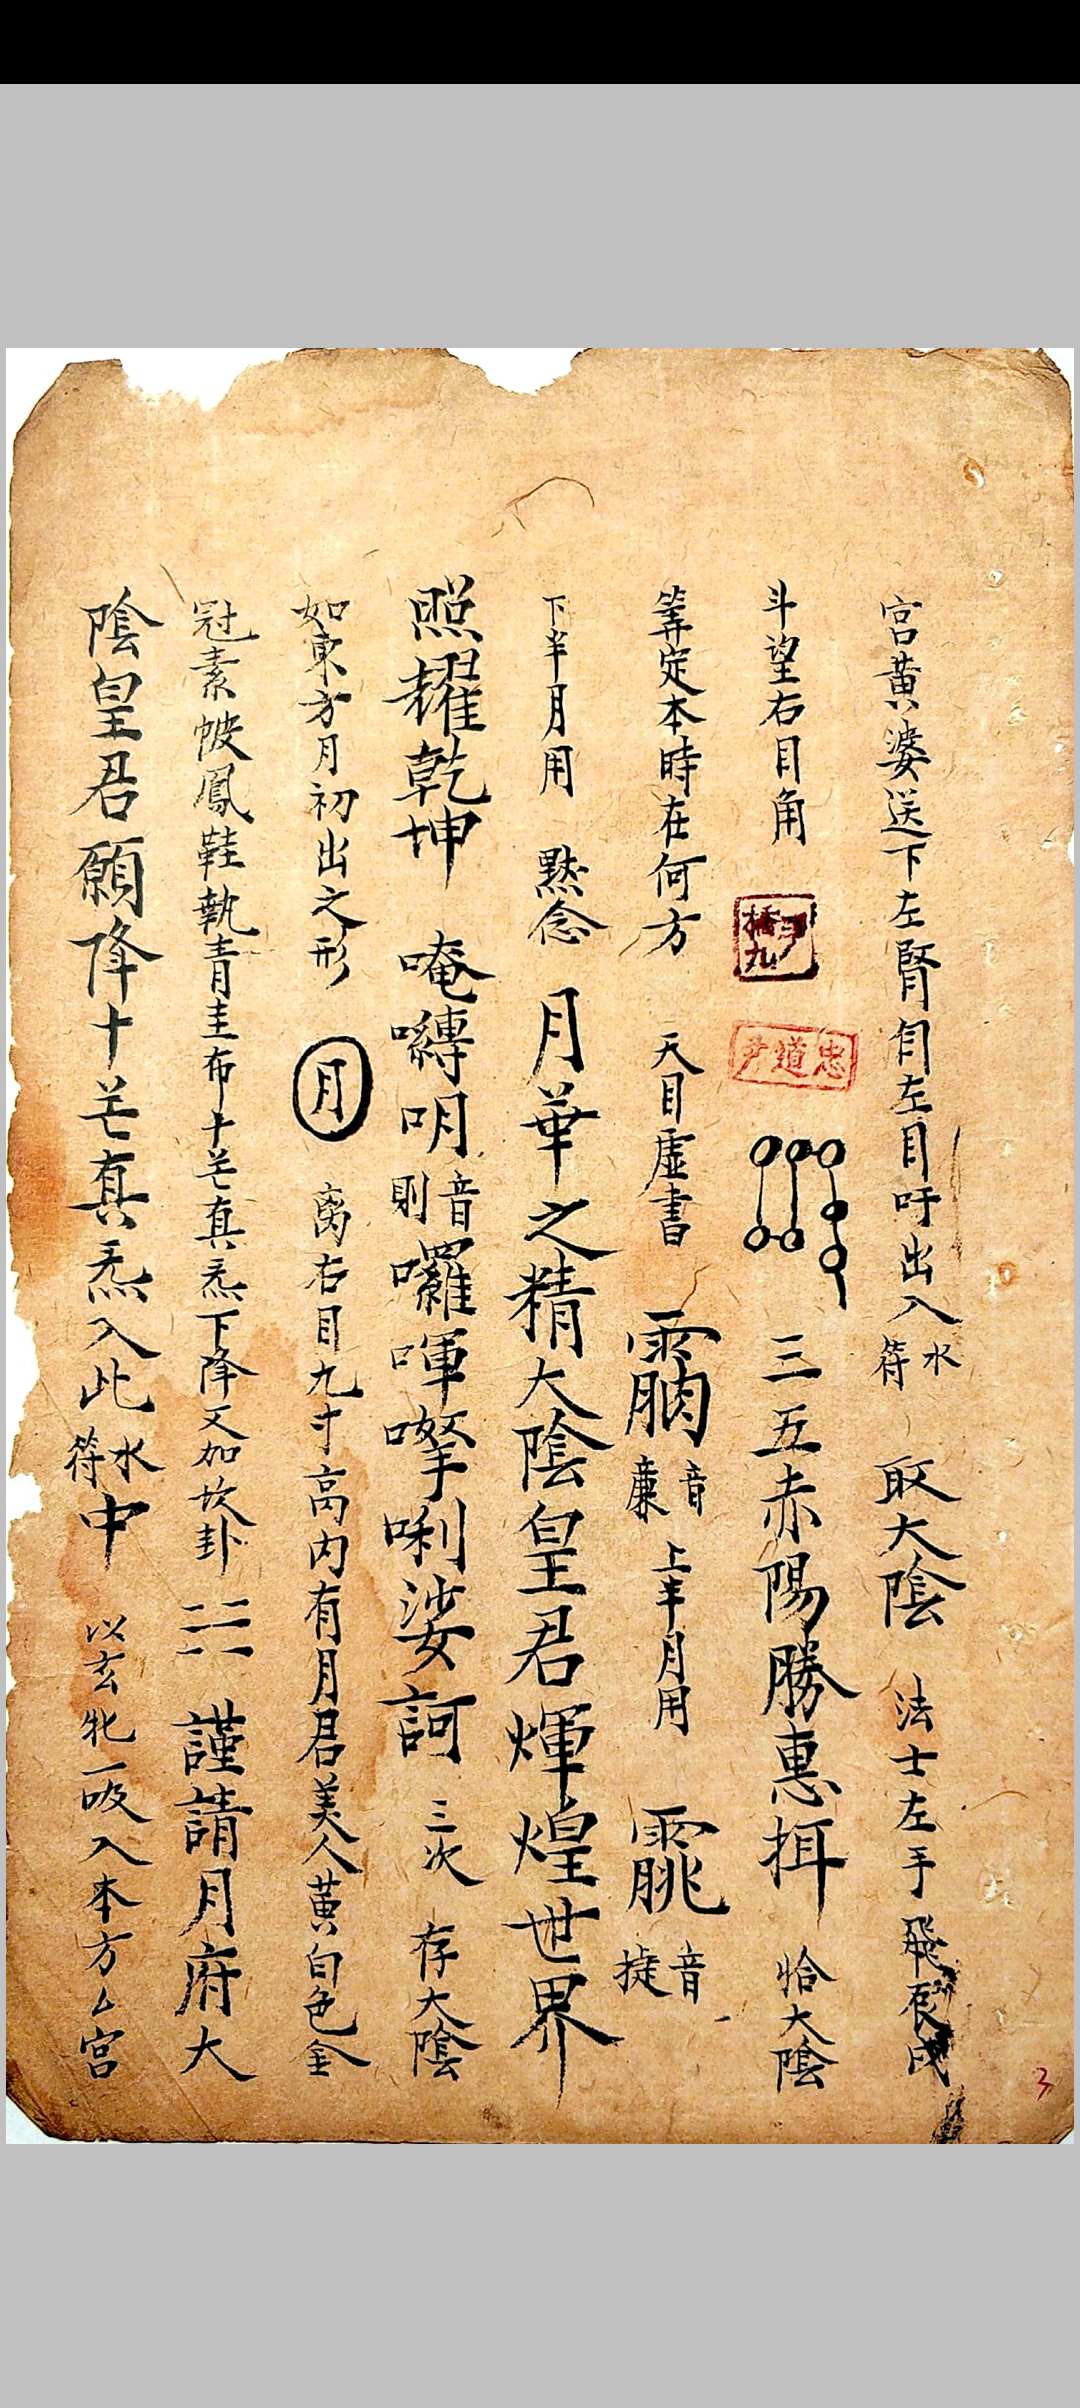 宮黄婆送下左腎自左目吁出入水符 取大陰 法士左手飛辰戌
斗望右目角 三五赤陽勝惠挕 恰大陰
忠道尹
等定本時在何方 天目虛書 音廉 上半月用 音㨗
下半月用 黙念 月華之精大陰皇君煇煌世界
照耀乾坤 唵囀明音則囉喗拏唎娑訶 三次 存大陰
如東方月初出之形 月 离右目九寸高内有月君美人黄白色金
冠素帔鳳鞋執青圭布十芒真炁下降又加坎卦 謹請月府大
陰皇君願降十芒真炁入此水符中 以玄牝一吸入本方么宮
3